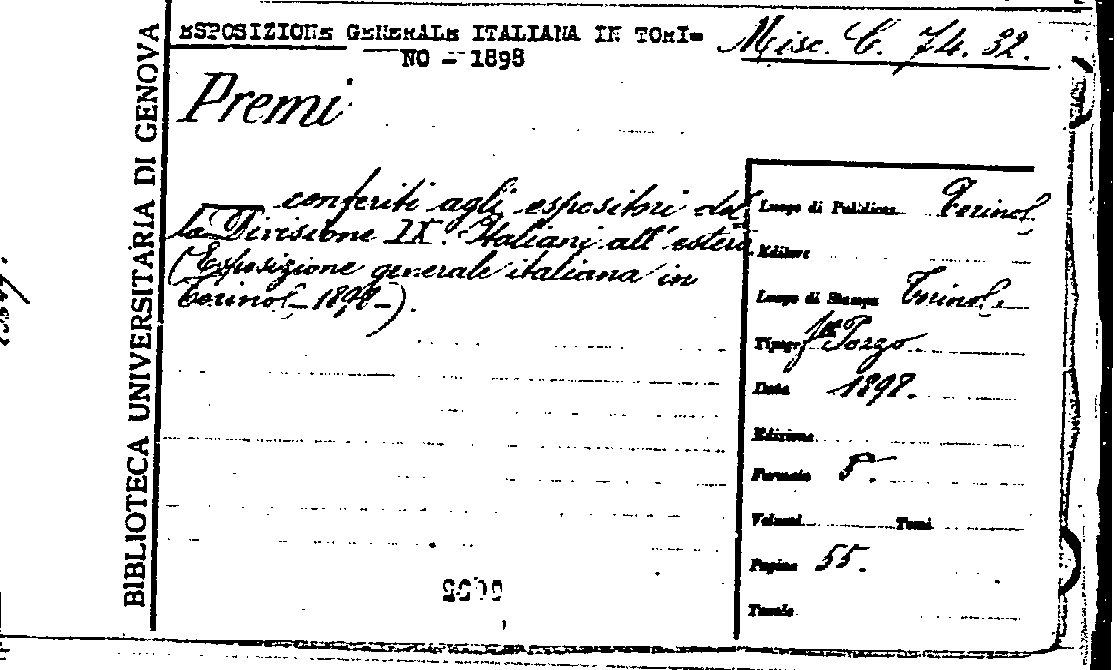 ESPOSIZIONE GENERALE ITALIANA IN TORI=
NO - 1898
Misc. C. 74. 32.
Premi
conferiti agli espositori del
la Divisione IX. Italiani all'estero
(Esposizione generale italiana in
Torino - 1898 -).
Luogo di Pubblicaz. Torino
Editore
Luogo di Stampa Torino
Tipogr.
Data 1898.
Edizione
Formato 8°.
Volumi Tomi
Pagine 55.
Tavole
BIBLIOTECA UNIVERSITARIA DI GENOVA